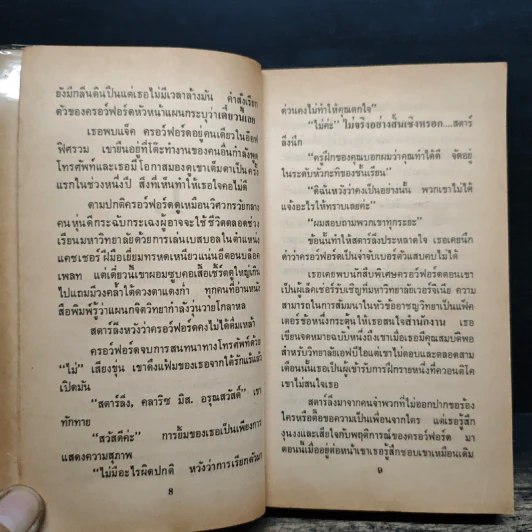 ยังมีกลิ่นดินปืนแต่เธอไม่มีเวลาล้างมัน คำสั่งเรียก
ตัวของครอว์ฟอร์ดหัวหน้าแผนกระบุว่าเดี๋ยวนี้เลย
เธอพบแจ็ค ครอว์ฟอร์ดอยู่คนเดียวในอ๊อฟ
ฟิศรวม เขายืนอยู่ที่โต๊ะทำงานของคนอื่นกำลังพูด
โทรศัพท์และเธอมีโอกาสมองดูเขาเต็มตาเป็นครั้ง
แรกในช่วงหนึ่งปี สิ่งที่เห็นทำให้เธอใจคอไม่ดี
ตามปกติครอว์ฟอร์ดดูเหมือนวิศวกรวัยกลาง
คนหุ่นดีกระฉับกระเฉงผู้อาจจะใช้ชีวิตตลอดช่วง
เรียนมหาวิทยาลัยด้วยการเล่นเบสบอลในตำแหน่ง
แคชเชอร์ ฝีมือเยี่ยมทรหดเหนียวแน่นอึดตอนบล็อค
เพลท แต่เดี๋ยวนี้เขาผอมซูบคอเสื้อเชิ้ตดูใหญ่เกิน
ไปแถมมีวงคล้ำใต้ดวงตาแดงก่ำ ทุกคนที่อ่านหนัง
สือพิมพ์รู้ว่าแผนกจิตวิทยากำลังวุ่นวายโกลาหล
สตาร์ลิงหวังว่าครอว์ฟอร์ดคงไม่ได้ดื่มเหล้า
ครอว์ฟอร์ดจบการสนทนาทางโทรศัพท์ด้วย
“ไม่” เสียงขุ่น เขาดึงแฟ้มของเธอจากใต้รักแร้แล้ว
เปิดมัน
“สตาร์ลิง, คลาริซ มิส. อรุณสวัสดิ์” เขา
ทักทาย
“สวัสดีค่ะ” การยิ้มของเธอเป็นเพียงการ
แสดงความสุภาพ
“ไม่มีอะไรผิดปกติ หวังว่าการเรียกตัวมา
8
ด่วนคงไม่ทำให้คุณตกใจ”
“ไม่ค่ะ” ไม่จริงอย่างสิ้นเชิงหรอก....สตาร์
ลิงนึก
“ครูฝึกของคุณบอกผมว่าคุณทำได้ดี จัดอยู่
ในระดับหัวกะทิของชั้นเรียน”
“ดิฉันหวังว่าคงเป็นอย่างนั้น พวกเขาไม่ได้
แจ้งอะไรให้ทราบเลยค่ะ”
“ผมสอบถามพวกเขาทุกระยะ”
ข้อนั้นทำให้สตาร์ลิงประหลาดใจ เธอเคยนึก
ว่าครอว์ฟอร์ดเป็นจ่าจับเบอร์ตัวแสบคบไม่ได้
เธอเคยพบนักสืบพิเศษครอว์ฟอร์ดตอนเขา
เป็นผู้เล็คเชอร์รับเชิญที่มหาวิทยาลัยเวอร์จิเนีย ความ
สามารถในการสัมมนาในหัวข้ออาชญวิทยาเป็นแฟ็ค
เตอร์ข้อหนึ่งกระตุ้นให้เธอสนใจสำนักงาน เธอ
เขียนจดหมายฉบับหนึ่งถึงเขาเมื่อเธอมีคุณสมบัติพอ
สำหรับวิทยาลัยเอฟบีไอแต่เขาไม่ตอบและตลอดสาม
เดือนนั้นเธอเป็นผู้เข้ารับการฝึกรายหนึ่งที่ควอนติโค
เขาไม่สนใจเธอ
สตาร์ลิงมาจากคนจำพวกที่ไม่ออกปากขอร้อง
ใครหรือตื๊อขอความเป็นเพื่อนจากใคร แต่เธอรู้สึก
งุนงงและเสียใจกับพฤติการณ์ของครอว์ฟอร์ด มา
ตอนนี้เมื่ออยู่ต่อหน้าเขาเธอรู้สึกชอบเขาเหมือนเดิม
9